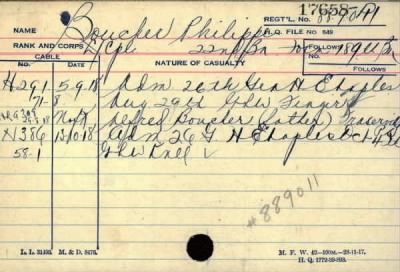 17658
NAME Boucher Philippe REGT'L. NO. 889011
H.Q. FILE NO. 649
RANK AND CORPS L/Cpl 22nd Bn FOLLOWS
CABLE NATURE OF CASUALTY
NO. DATE FOLLOWS
H291 5-9-18 Adm 26th Gen H Etaples
71-8 Aug 29th GSW Finger
Next Alfred Boucher (father)
N386 13-10-18 Adm 26 G H Etaples Oct
58-1 GSW Knee
#889011
L. L. 31493. M. & D. 8476. M. F. W. 42—100M.—28-11-17.
H. Q. 1772-39-893.